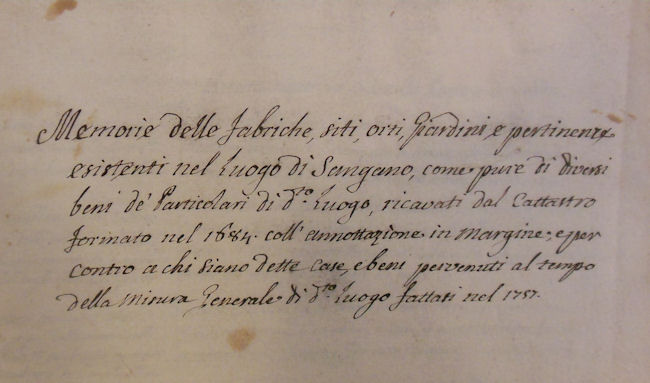 Memorie delle fabriche, siti, orti, Giardini, e pertinenze
esistenti nel Luogo di Sangano, come pure di diversi
beni de' Particolari di d.to Luogo, ricavati dal Cattastro
formato nel 1684. coll' annottazione in margine, e per
contro a chi siano dette case, e beni pervenuti al tempo
della misura Generale di d.to Luogo fattasi nel 1757.